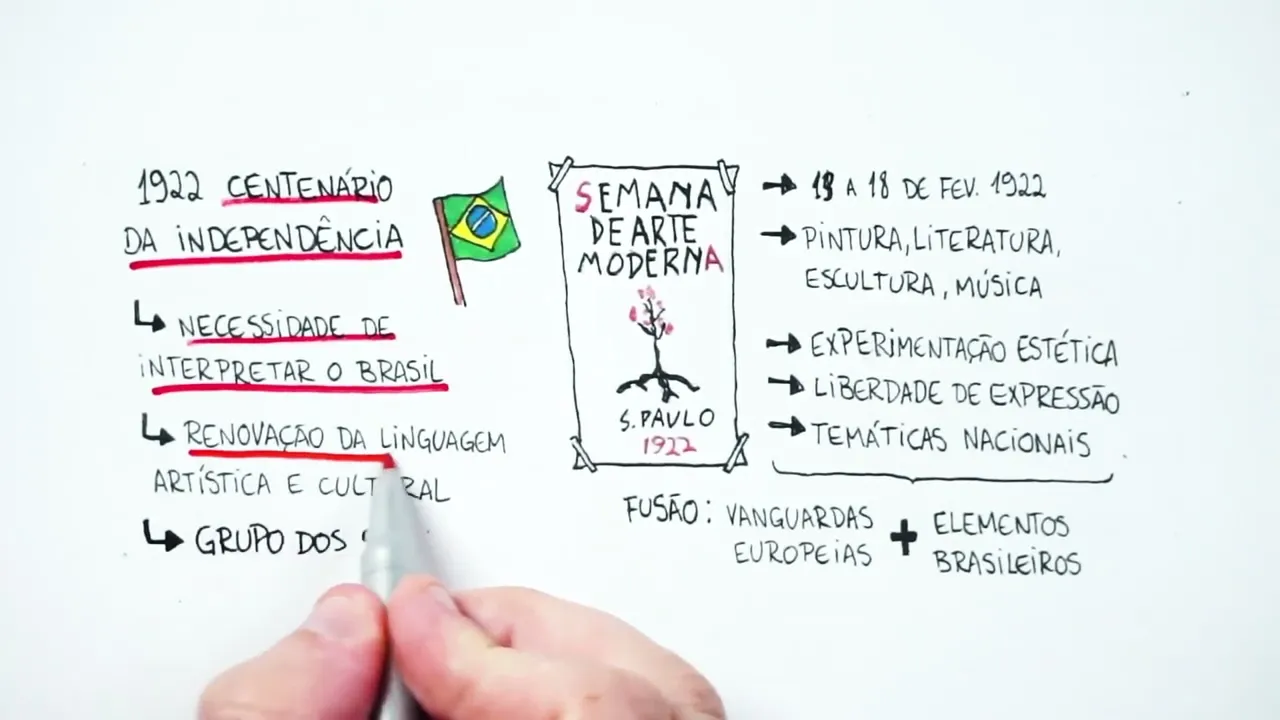 1922 CENTENÁRIO
DA INDEPENDÊNCIA
NECESSIDADE DE
INTERPRETAR O BRASIL
RENOVAÇÃO DA LINGUAGEM
ARTÍSTICA E
GRUPO DOS
SEMANA
DE ARTE
MODERNA
S. PAULO
1922
A 18 DE FEV. 1922
PINTURA, LITERATURA,
ESCULTURA, MÚSICA
EXPERIMENTAÇÃO ESTÉTICA
LIBERDADE DE EXPRESSÃO
TEMÁTICAS NACIONAIS
FUSÃO: VANGUARDAS
EUROPEIAS
+
ELEMENTOS
BRASILEIROS